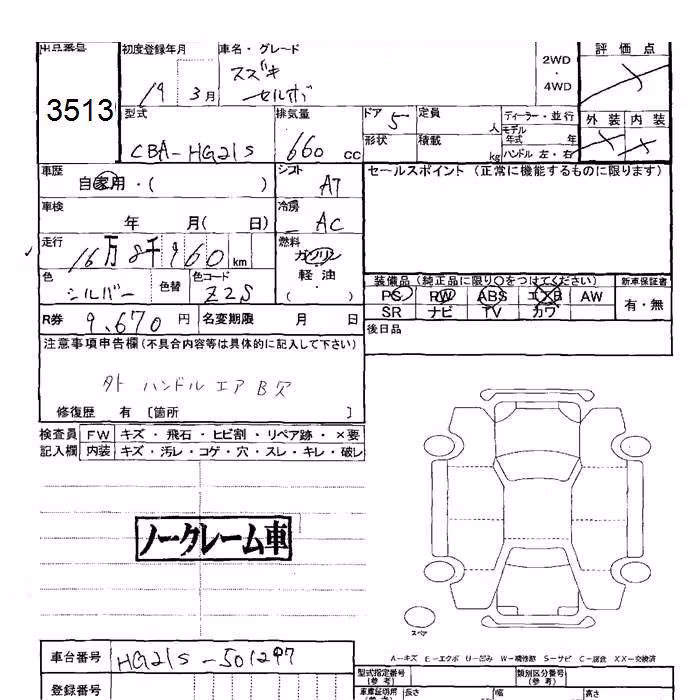 出品番号 初度登録年月 車名・グレード 2WD ・ 4WD 評価点
3513 19 3月 スズキ セルボ
型式 CBA-HG21S 排気量 660 cc ドア 5 定員 人 ディーラー・並行 外装 内装
形状 積載 kg モデル年式 年 ハンドル 左・右
車歴 自家用・( ) シフト AT セールスポイント (正常に機能するものに限ります)
車検 年 月( 日) 冷房 AC
走行 16万8千960km 燃料 ガソリン 軽油 ( )
色 シルバー 色替 色コード Z2S
装備品(純正品に限り○をつけてください) 新車保証書
PS PW ABS エアB AW 有・無
SR ナビ TV カワ
R券 9,670円 名変期限 月 日 後日品
注意事項申告欄(不具合内容等は具体的に記入して下さい)
外 ハンドル エアB欠
修復歴 有 〔箇所 〕
検査員 FW キズ・飛石・ヒビ割・リペア跡・×要
記入欄 内装 キズ・汚レ・コゲ・穴・スレ・キレ・破レ
ノークレーム車
スペア
A-キズ E-エクボ U-凹み W-補修跡 S-サビ C-腐食 XX-交換済
車台番号 HG21S-501297 型式指定番号(参考) 類別区分番号(参考)
登録番号 車庫証明用(参考) 長さ 幅 高さ